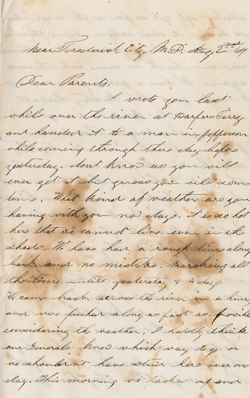 Near Frederick City M.D. Aug 2nd
Dear Parents,
I wrote you last
while over the river at Harpers Ferry
and handed it to a man in Jefferson
while coming through there day before
yesterday, dont know as you will
ever get it but guess you will some
time. What kind of weather are you
having with you now days. it is so hot
here that we cannot live even in the
shade. We have had a rough time along
back and no mistake. Marching all
the time until yesterday
We came back across the river in a hurry
and was pushed along as fast as possible
considering the weather, I hardly think
our Generals know which way to go or
we shouldn't have staid here over one
day. This morning we packed up and